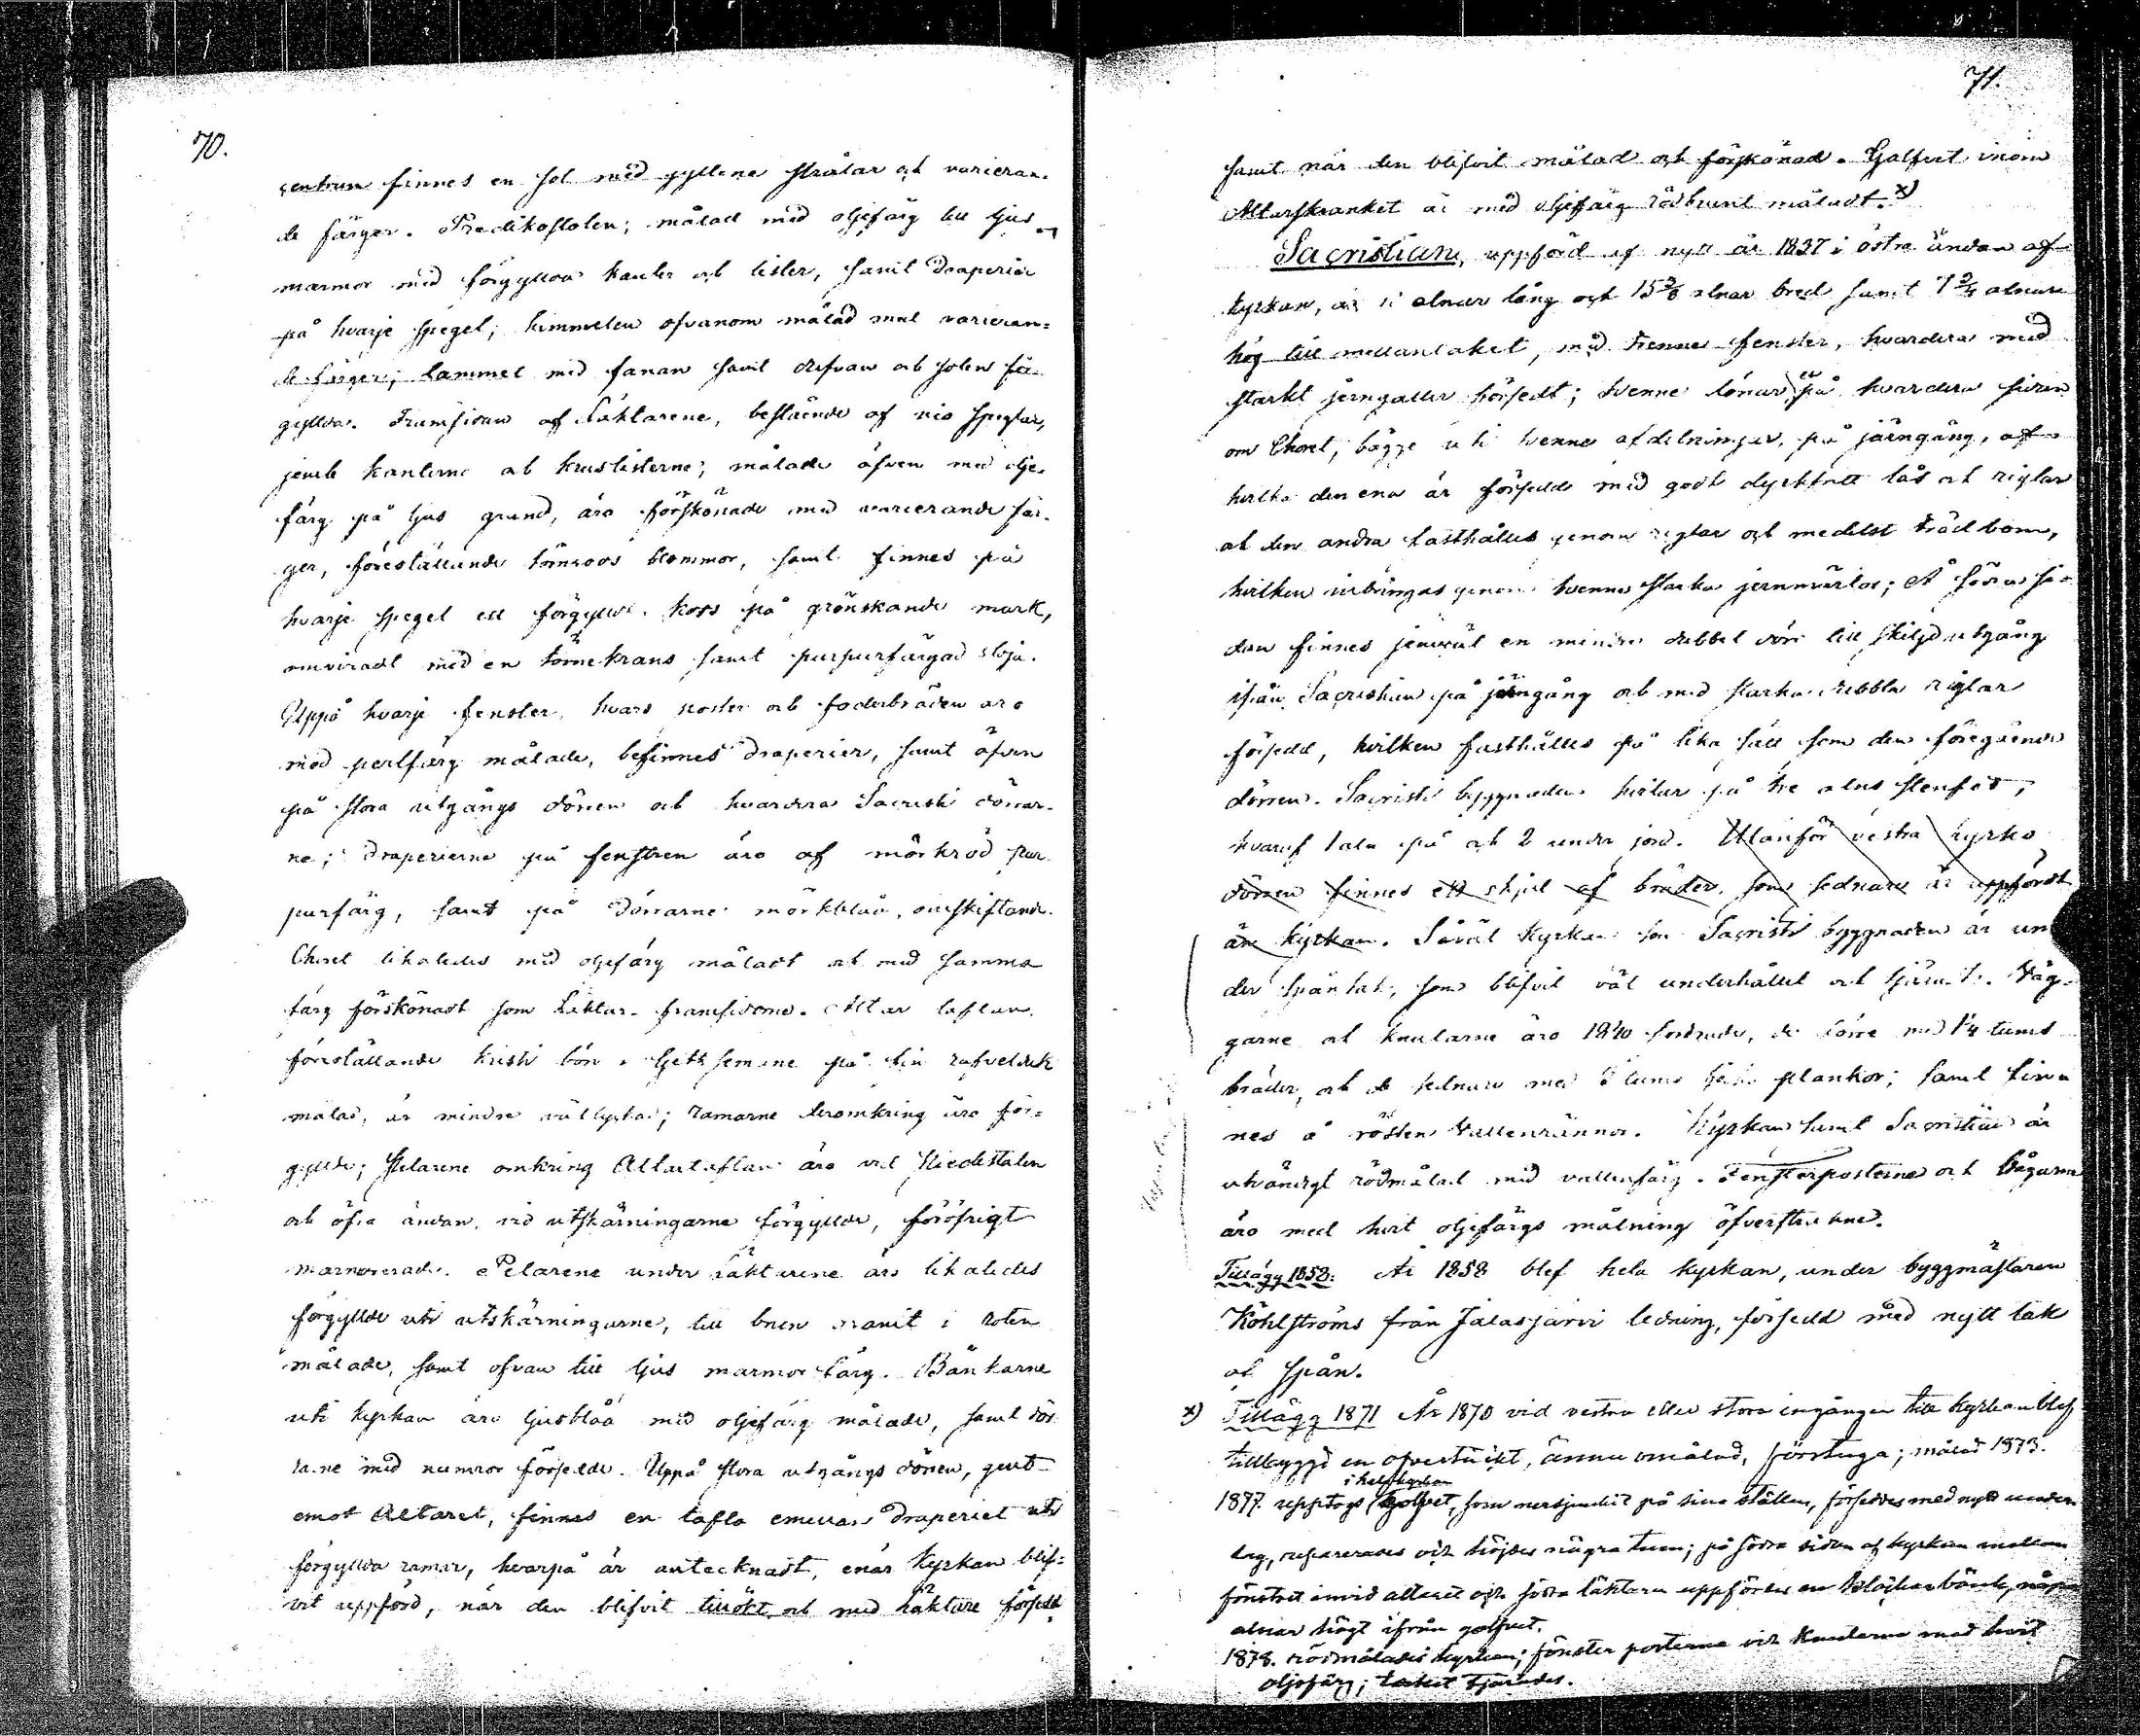 70.
centrum finnes en sol med gyllene strålar och varieran-
de färger. Predikostolen; målad med oljefärg till ljus
marmor med förgyllda kanter och lister, samt draperier
på hvarje spegel; himmelen ofvanom målad med varieran=
de färger; lammet med fanan samt dufvan och solen för-
gyllda. Framsidan af Läktarene, bestående af nio speglar,
jemte kanterne och kruslisterne; målade äfven med olje-
färg på ljus grund, äro förskönade med varierande fär-
ger, föreställande törnroos blommor, samt finnes på
hvarje spegel ett förgyllt kors på grönskande mark,
omviradt med en törnekrans samt purpurfärgad slöja.
Uppå hvarje fenster, hvars poster och foderbräden äro
med perlfärg målade, befinnes draperier, samt äfven
på stora utgångs dörren och hvardera Sacristi dörrar-
ne; draperierne på fenstren äro af mörkröd pur-
purfärg, samt på dörrarne mörkblåa, omskiftande.
Choret likaledes med oljefärg måladt och med samma
färg förskönadt som Läktar-framsidorna. Altar taflan,
föreställande Kristi bön i Gethsemane på fin
målad, är mindre väl lyckad; ramarne deromkring äro för=
gyllde; Pelarene omkring Altartaflan äro vid Piedestalen
och öfra ändan, vid utskärningarne förgyllde, föröfrigt
marmorerade. Pelarene under läktarene äro likaledes
förgyllde uti utskärningarne, till brun granit i roten
målade, samt ofvan till ljus marmor färg. Bänkarne
uti kyrkan äro ljusblåa med oljefärg målade, samt dör-
rarne med numror försedde. Uppå stora utgångs dörren, gent-
emot Altaret, finnes en tafla emellan draperiet uti
förgyllda ramar, hvarpå är antecknadt, enär Kyrkan blif=
vit uppförd, när den blifvit tillökt och med läktare försedd
71.
samt när den blifvit målad och förskönad. Golfvet inom
Altarskranket är med oljefärg rödbrunt måladt. x)
Sacristian, uppförd af nytt år 1837 i östra ändan af
kyrkan, är 11 alnar lång och 15 3/8 alnar bred samt 7 3/4 alnar
hög till mellantaket, med trenne fenster, hvardera med
starkt jerngaller försedt; tvenne dörrar, en på hvardera sidan
om Choret, bägge uti tvenne afdelningar, på järngång, af
hvilka den ena är försedd med godt dycktritt lås och riglar
och den andra fasthålles genom riglar och medelst trädbom,
hvilken inbringas genom tvenne starka jernmärlor; Å södra si-
dan finnes jemväl en mindre dubbel dörr till skiljd utgång
ifrån Sacristian på järngång och med starka dubbla riglar
försedd, hvilken fasthålles på lika sätt som den föregående
dörren. Sacristi byggnaden hvilar på tre alns stenfot,
hvaraf 1 aln på och 2 under jord. Utanför vestra kyrko
dörren finnes ett skjul af bräder, som sednare är uppfördt
än kyrkan. Såväl Kyrkan som Sacristi byggnaden är un
der spåntak, som blifvit väl underhållet och tjäradt. Väg-
garne och knutarne äro 1840 fodrade, de förre med 1 1/4 tums
bräder, och de sednare med 2 tums plankor; samt fin-
nes å rösten vattenrännor. Kyrkan samt Sacristian är
utvändigt rödmålad med vattenfärg. Fensterposterne och bågarne
äro med hvit oljefärgs målning öfverstrukne.
Tillägg 1858: År 1858 blef hela kyrkan, under byggmästaren
Köhlströms från Jalasjärvi ledning, försedd med nytt tak
af spån.
x) Tillägg 1871 År 1870 vid vestra eller stora ingången till kyrkan blef
tillbyggd en ofvertäckt, ännu omålad, förstuga; målad 1873.
i hela kyrkan
1877. upptogs golfvet, som nersjunkit på sina ställen, försedes med nytt under-
lag, reparerades och höjdes några tum; på södra sidan af kyrkan mellan
fönstret invid altaret och södra läktaren uppfördes en klockarebänk, några
alnar högt ifrån golfvet.
1878. rödmålades kyrkan; fönster posterna och knutarna med hvit
oljefärg; taket tjärades.